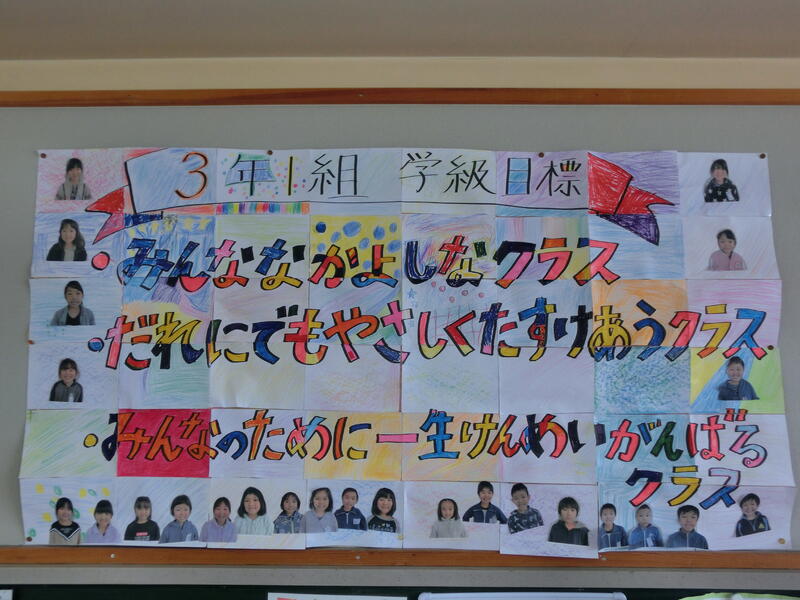 3年1組 学級目標
・みんななかよしなクラス
・だれにでもやさしくたすけあうクラス
・みんなのために一生けんめいがんばる
クラス